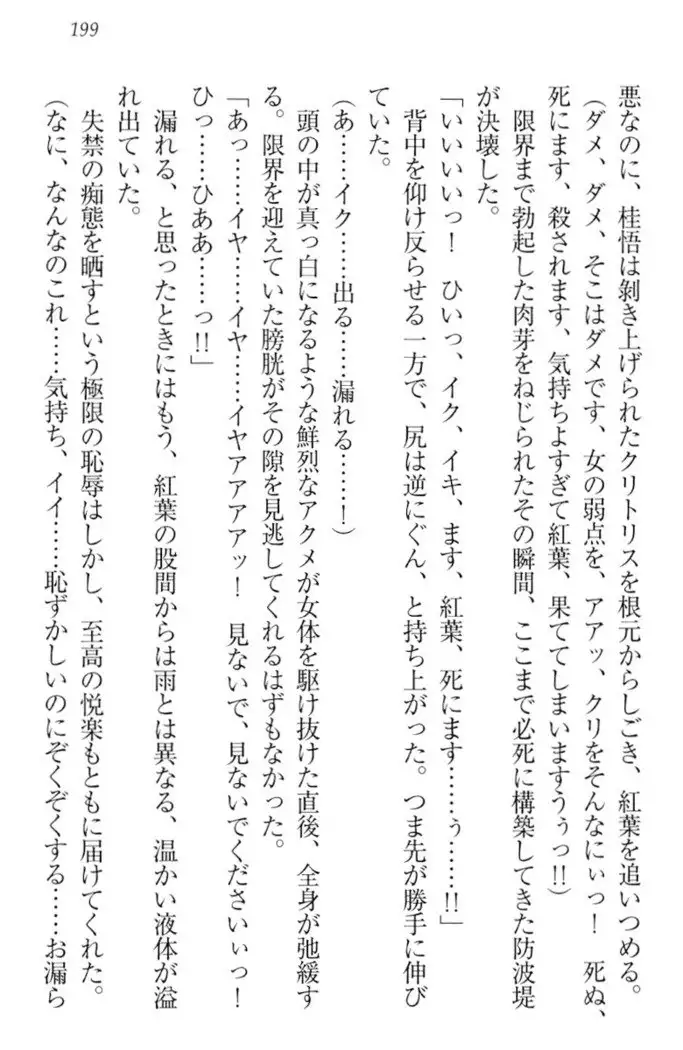 199
悪なのに、桂悟は剝き上げられたクリトリスを根元からしごき、紅葉を追いつめる。
(ダメ、ダメ、そこはダメです、女の弱点を、アアッ、クリをそんなにぃっ！　死ぬ、
死にます、殺されます、気持ちよすぎて紅葉、果ててしまいますうぅっ!!)
限界まで勃起した肉芽をねじられたその瞬間、ここまで必死に構築してきた防波堤
が決壊した。
「いいいいっ！　ひいっ、イク、イキ、ます、紅葉、死にます……ぅ……!!」
背中を仰け反らせる一方で、尻は逆にぐん、と持ち上がった。つま先が勝手に伸び
ていた。
(あ……イク……出る……漏れる……！)
頭の中が真っ白になるような鮮烈なアクメが女体を駆け抜けた直後、全身が弛緩す
る。限界を迎えていた膀胱がその隙を見逃してくれるはずもなかった。
「あっ……イヤ……イヤ……イヤアアアアッ！　見ないで、見ないでくださいぃっ！
ひっ……ひああ……っ!!」
漏れる、と思ったときにはもう、紅葉の股間からは雨とは異なる、温かい液体が溢
れ出ていた。
失禁の痴態を晒すという極限の恥辱はしかし、至高の悦楽もともに届けてくれた。
(なに、なんなのこれ……気持ち、イイ……恥ずかしいのにぞくぞくする……お漏ら